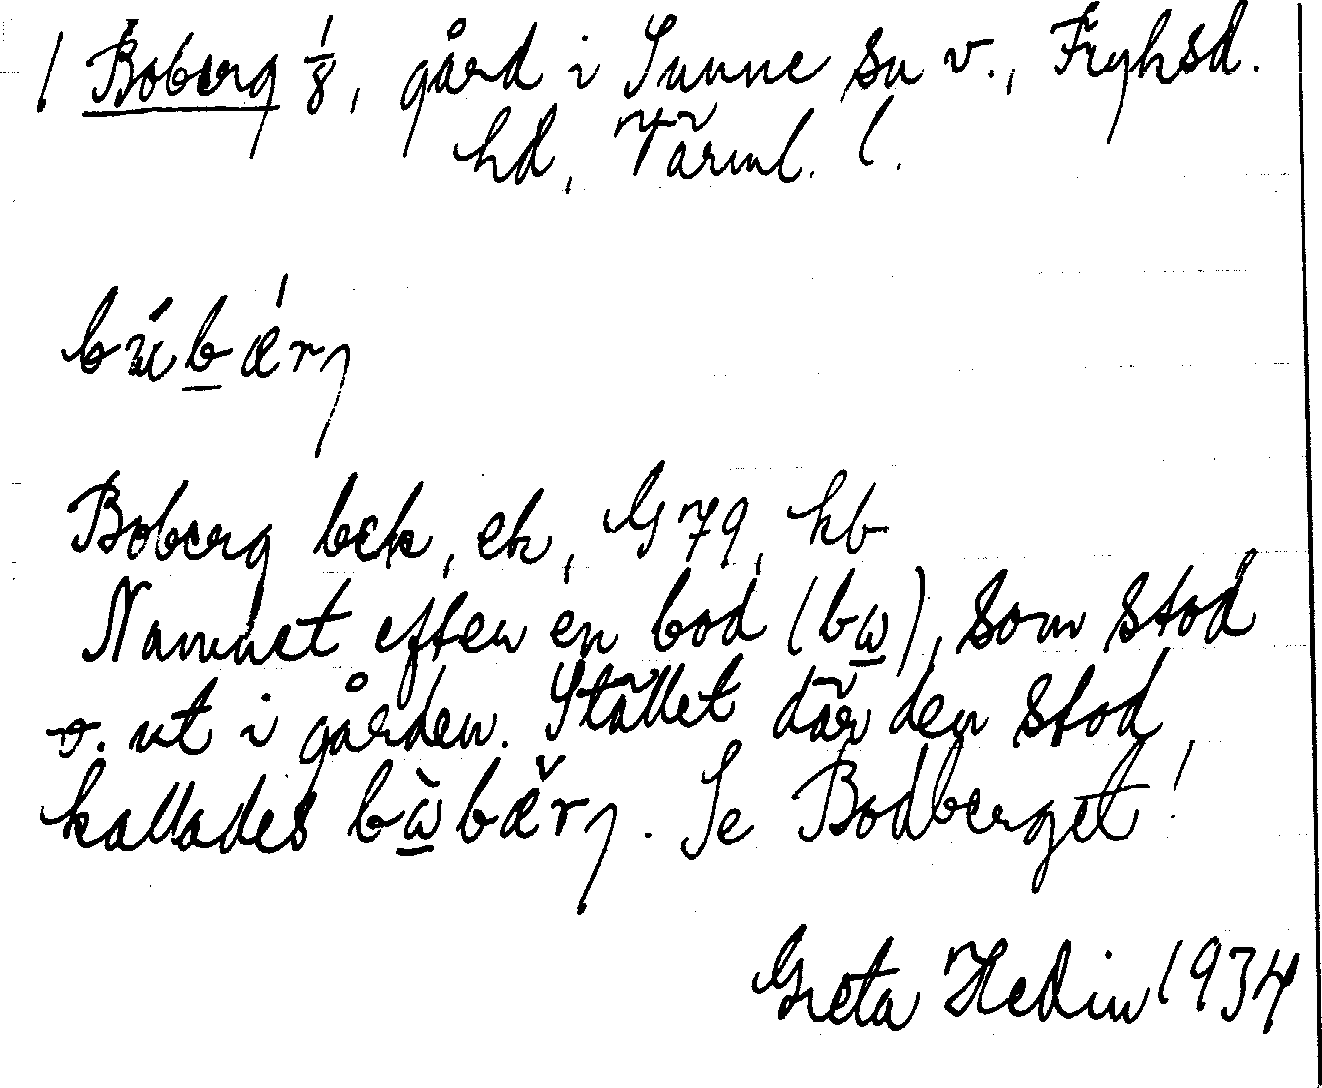 1 Boberg 1/8, gård i Sunne sn v., Fryksd.
hd, Värml. l.
búbær̨
Boberg bek, ek, G79, hb
Namnet efter en bod (bω̲), som stod
o. ut i gården. Stället där den stod,
kallades bὼ̲bæ̌r̨. Se Bodberget!
Greta Hedin 1934